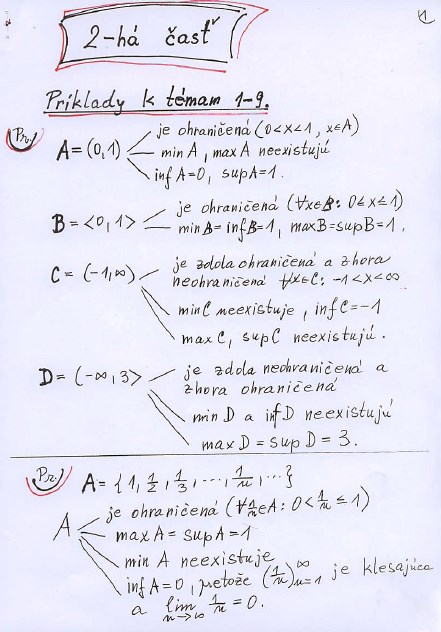 1
2-há časť
Príklady k témam 1-9.
Pr. A = (0,1) je ohraničená (0<x<1, x∈A)
min A, max A neexistujú
inf A=0, sup A=1.
B = <0,1> je ohraničená (∀x∈B: 0≤x≤1)
min B = inf B=1, max B=sup B=1.
C = (-1,∞) je zdola ohraničená a zhora
neohraničená ∀x∈C: -1<x<∞
min C neexistuje, inf C=-1
max C, sup C neexistujú.
D = (-∞,3> je zdola neohraničená a
zhora ohraničená
min D a inf D neexistujú
max D = sup D = 3.
Pr. A = {1, 1/2, 1/3, ..., 1/n, ...}
A je ohraničená (∀1/n∈A: 0<1/n≤1)
max A = sup A = 1
min A neexistuje
inf A=0, pretože (1/n)∞n=1 je klesajúca
a lim n→∞ 1/n = 0.